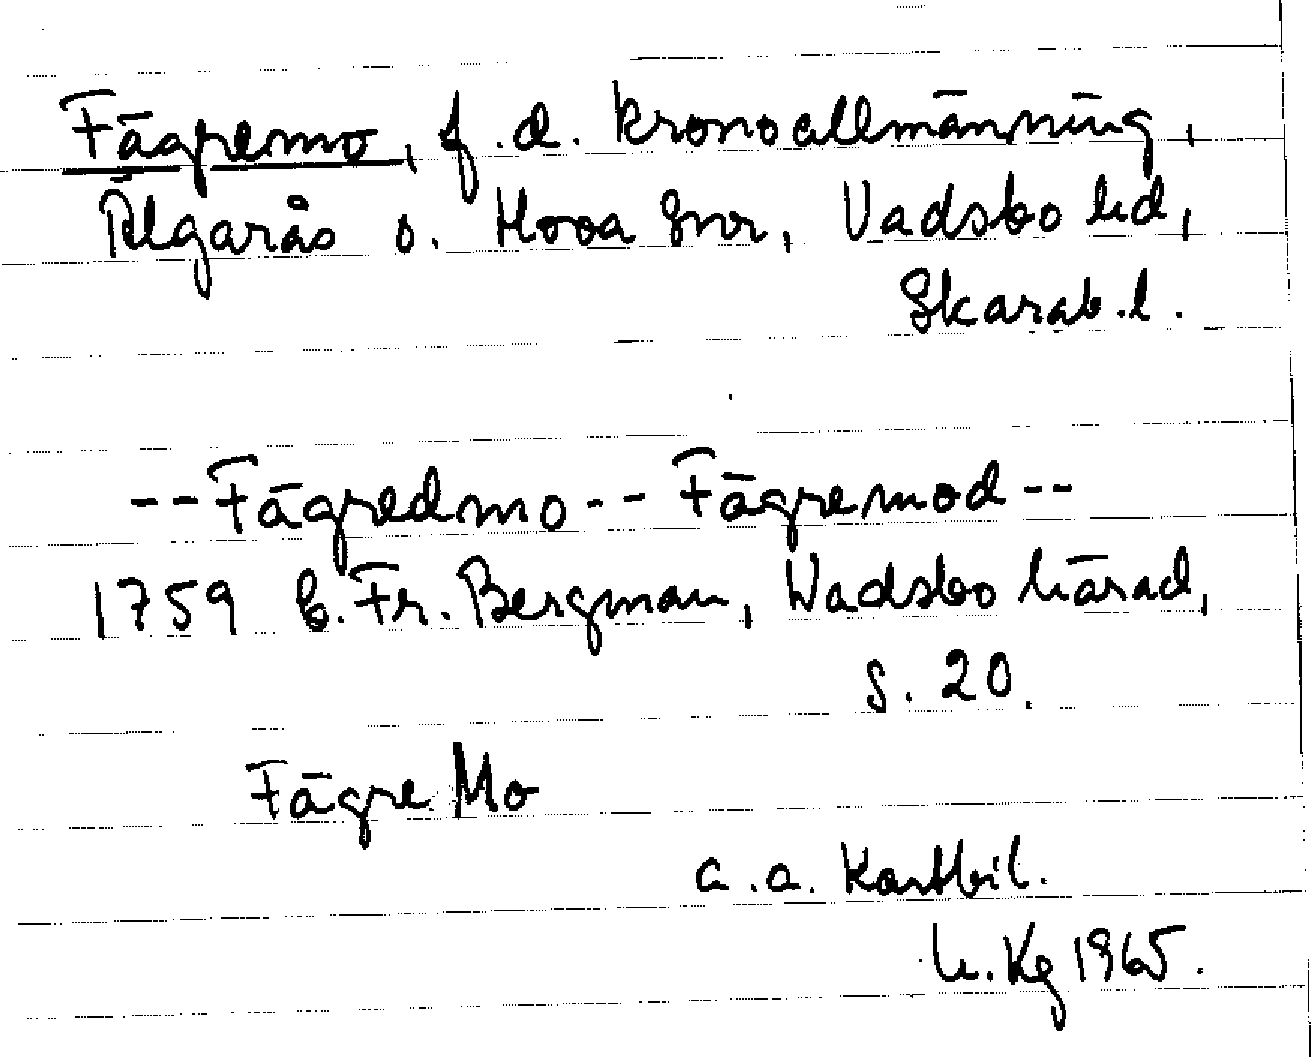 Fägremo, f.d. kronoallmänning,
Älgarås o. Hova snr, Vadsbo hd,
Skarab.l.
-- Fägredmo -- Fägremod --
1759 B. Fr. Bergman, Wadsbo härad,
s. 20.
Fägre Mo
a.a. Kartbil.
Kg 1965.